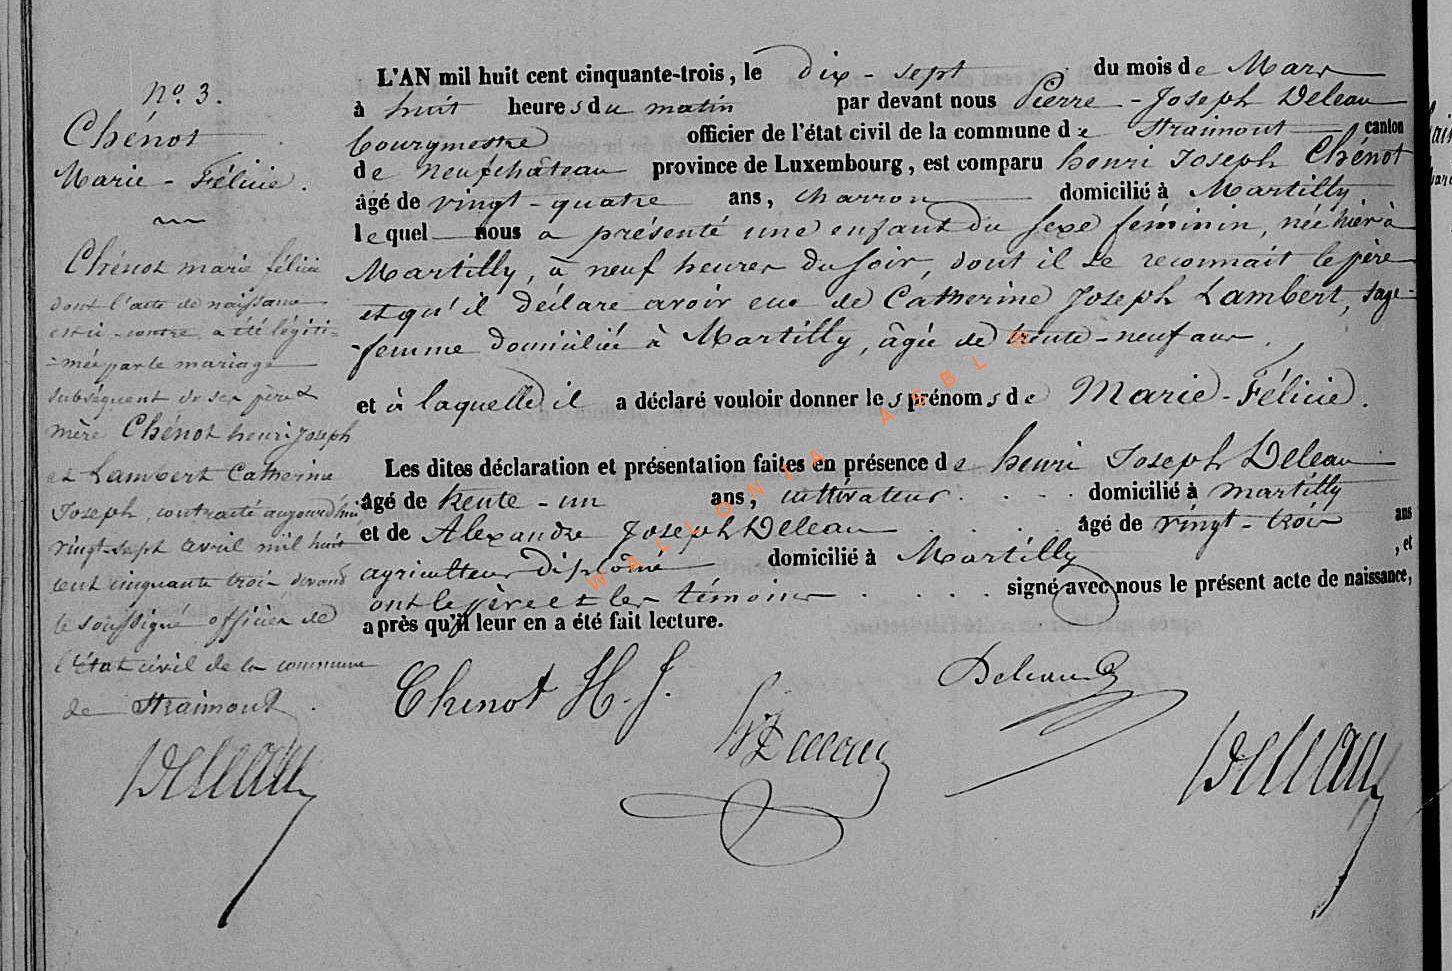 No. 3.
Chénot
Marie - Félicie.
Chénot marie félicie
dont l'acte de naissance
est ci-contre a été légiti-
-mée par le mariage
subséquent de ses père &
mère Chénot henri Joseph
et Lambert Catherine
Joseph, contracté aujourd'hui
vingt-sept avril mil huit
cent cinquante trois devant
le soussigné officier de
l'état civil de la commune
de Straimont.
Deleau
L'AN mil huit cent cinquante-trois, le dix-sept du mois de Mars
à huit heures du matin par devant nous Pierre-Joseph Deleau
bourgmestre officier de l'état civil de la commune de Straimont canton
de Neufchâteau province de Luxembourg, est comparu henri Joseph Chénot
âgé de vingt-quatre ans, charron domicilié à Martilly
lequel nous a présenté une enfant du sexe féminin, née hier à
Martilly, à neuf heures du soir, dont il se reconnait le père
et qu'il déclare avoir eue de Catherine Joseph Lambert, sage-
-femme domiciliée à Martilly, âgée de trente-neuf ans.
et à laquelle il a déclaré vouloir donner les prénoms de Marie-Félicie.
Les dites déclaration et présentation faites en présence de henri Joseph Deleau
âgé de trente-un ans, cultivateur domicilié à martilly
et de Alexandre Joseph Deleau âgé de vingt-trois ans
agriculteur diplômé domicilié à Martilly, et
ont le père et les témoins signé avec nous le présent acte de naissance,
après qu'il leur en a été fait lecture.
Chenot H. J.
Deleau
Deleau
WALLONIA ASBL ©